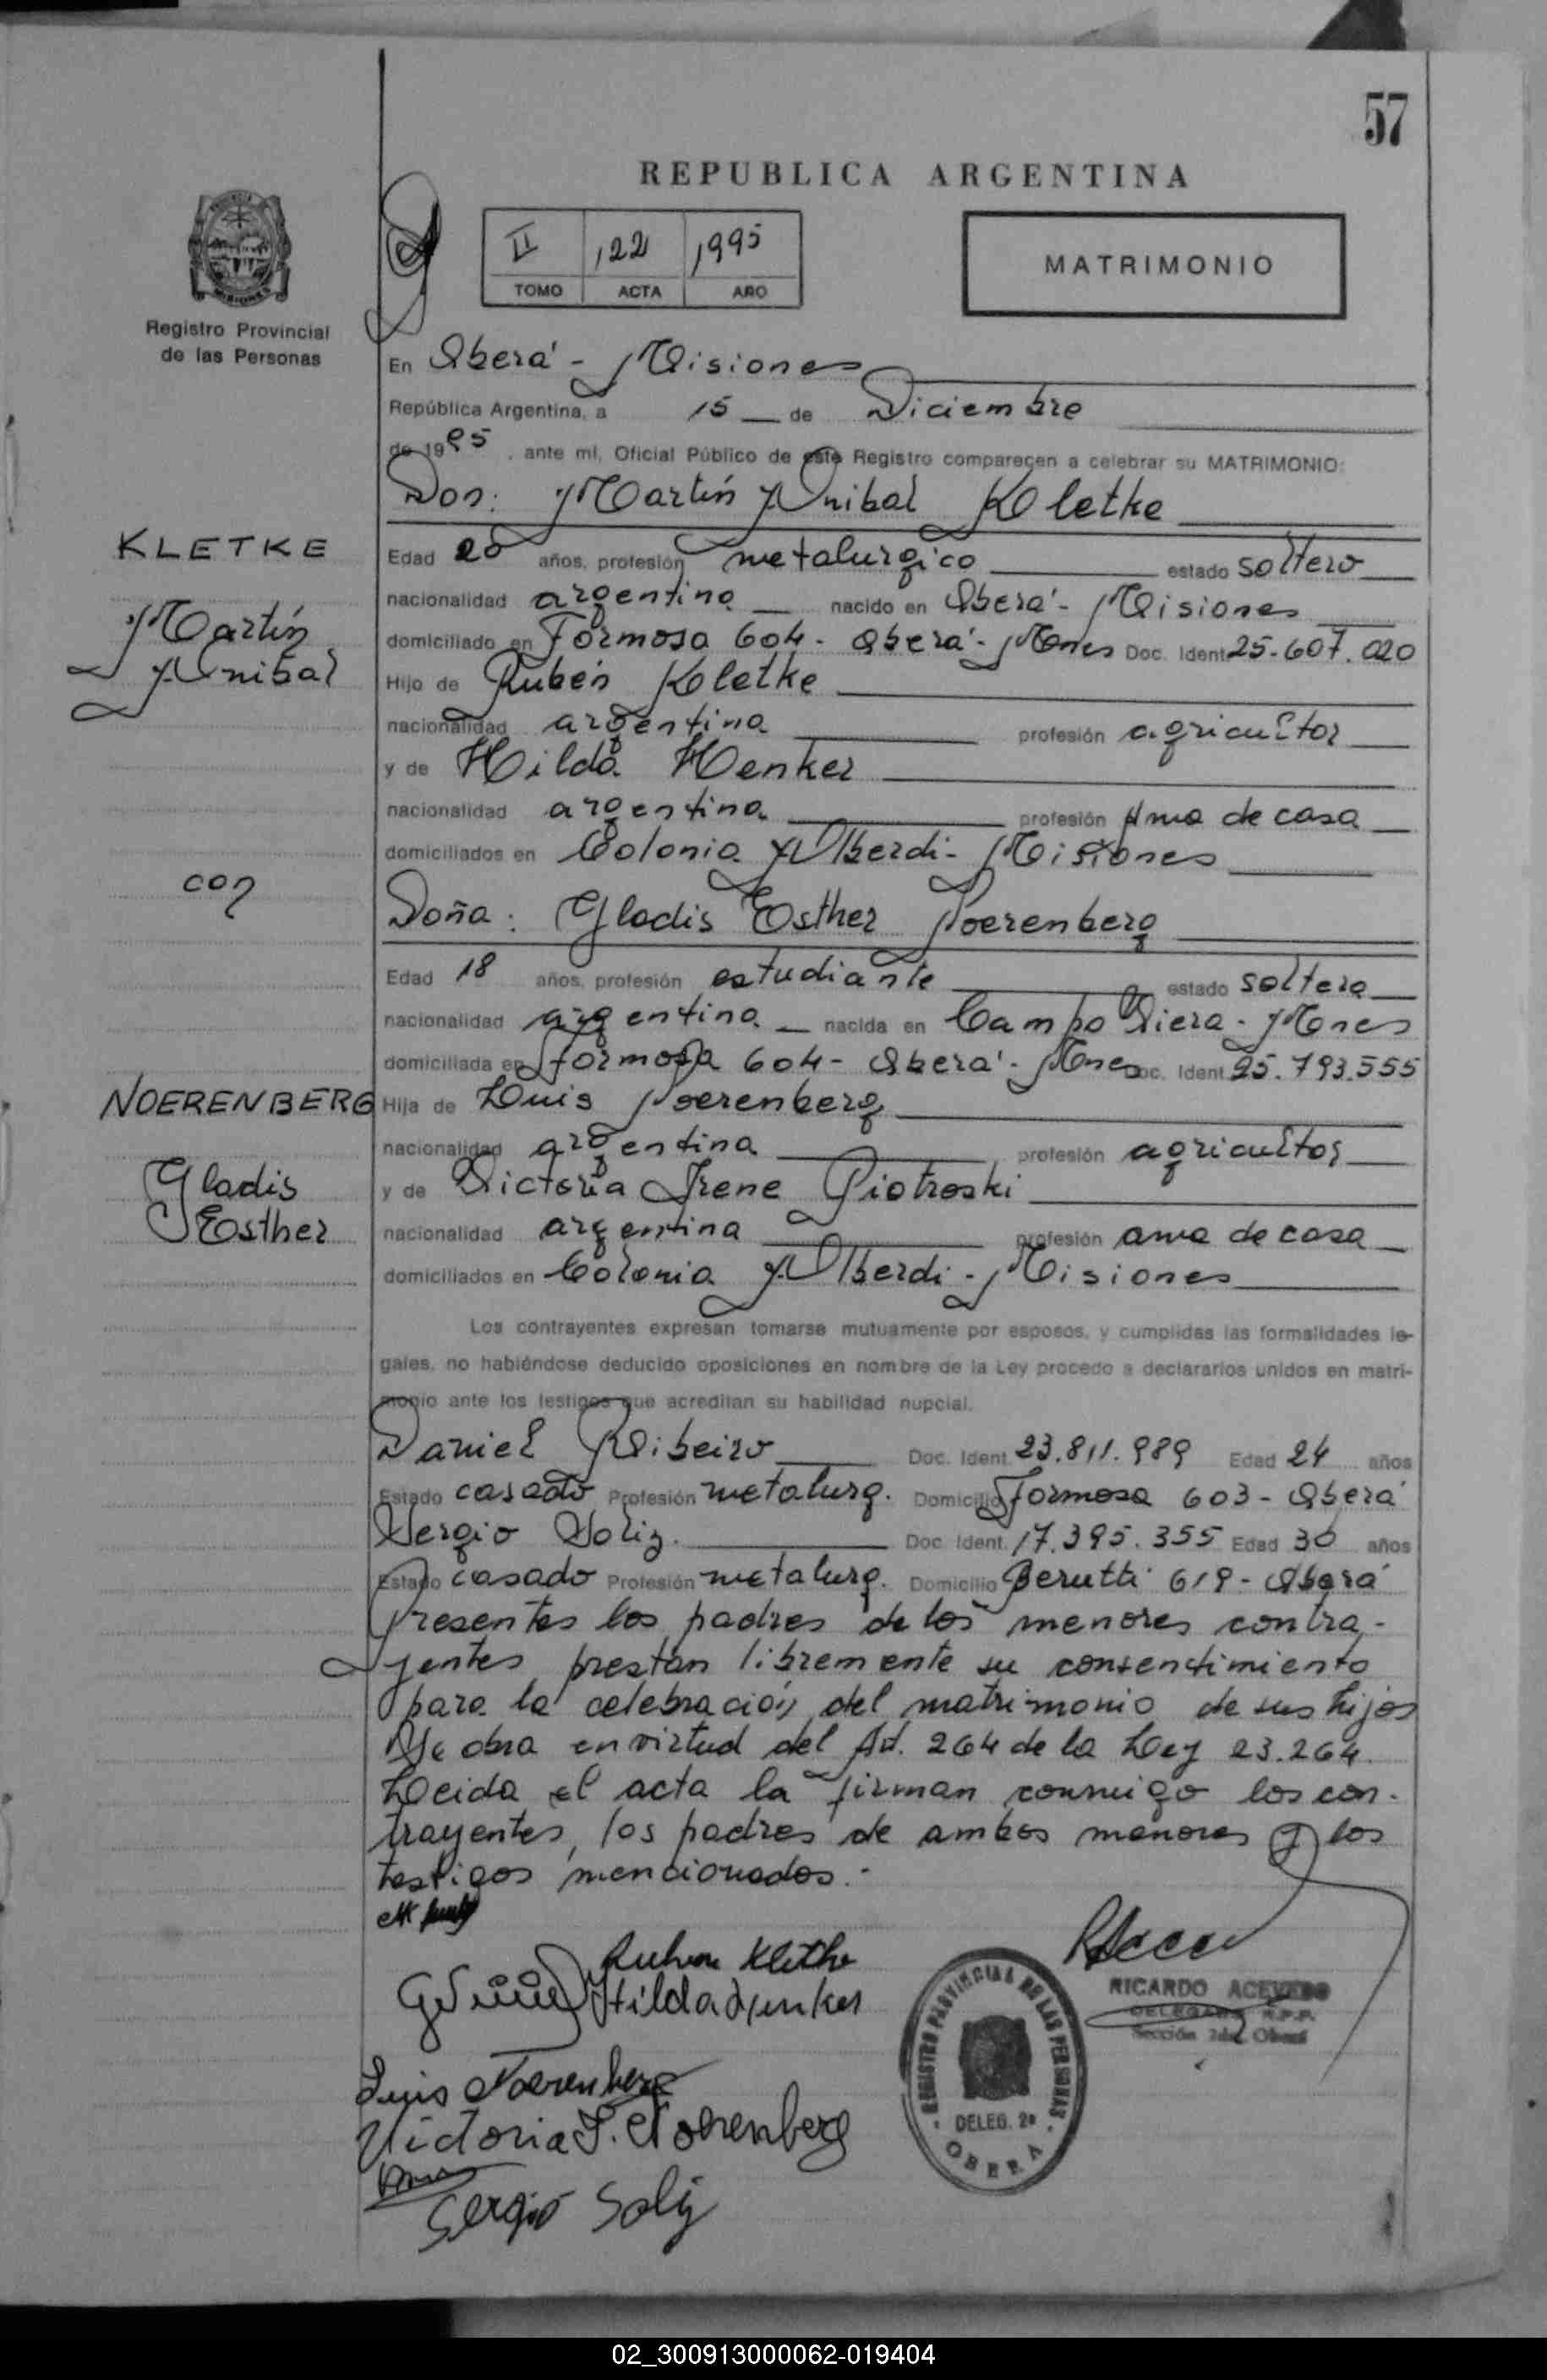 57
REPUBLICA ARGENTINA
II 122 1995
TOMO ACTA AÑO
MATRIMONIO
Registro Provincial
de las Personas
En Oberá - Misiones
República Argentina, a 15 de Diciembre
de 1995, ante mí, Oficial Público de este Registro comparecen a celebrar su MATRIMONIO:
Don: Martín Anibal Kletke
KLETKE
Martín
Anibal
Edad 20 años, profesión metalurgico estado soltero
nacionalidad argentina nacido en Oberá - Misiones
domiciliado en Formosa 604 - Oberá - Mnes Doc. Ident 25.607.020
Hijo de Rubén Kletke
nacionalidad argentina profesión agricultor
y de Hilda Henker
nacionalidad argentina profesión Ama de casa
domiciliados en Colonia Alberdi - Misiones
con
Doña: Gladis Esther Noerenberg
Edad 18 años, profesión estudiante estado soltera
nacionalidad argentina nacida en Campo Viera - Mones
domiciliada en Formosa 604 - Oberá - Mnes Doc. Ident 25.793.555
NOERENBERG
Gladis
Esther
Hija de Luis Noerenberg
nacionalidad argentina profesión agricultor
y de Victoria Irene Piotroski
nacionalidad argentina profesión ama de casa
domiciliados en Colonia Alberdi - Misiones
Los contrayentes expresan tomarse mutuamente por esposos, y cumplidas las formalidades le-
gales, no habiéndose deducido oposiciones en nombre de la Ley procedo a declararlos unidos en matri-
monio ante los testigos que acreditan su habilidad nupcial.
Daniel Ribeiro Doc. Ident 23.811.989 Edad 24 años
Estado casado Profesión metalurg. Domicilio Formosa 603 - Oberá
Sergio Soliz. Doc. Ident. 17.395.355 Edad 30 años
Estado casado Profesión metalurg. Domicilio Berutti 619 - Oberá
Presentes los padres de los menores contra-
yentes prestan libremente su consentimiento
para la celebración del matrimonio de sus hijos
Se obra en virtud del Art. 264 de la Ley 23.264.
Leida el acta la firman conmigo los con-
trayentes, los padres de ambos menores y los
testigos mencionados.-
Ruben Kletke
Hilda Henker
Luis Noerenberg
Victoria I. Noerenberg
Sergio Soliz
RICARDO ACEVEDO
DELEGADO R.P.P.
Sección 2da. Oberá
REGISTRO PROVINCIAL DE LAS PERSONAS
DELEG. 2a
OBERA
02_300913000062-019404